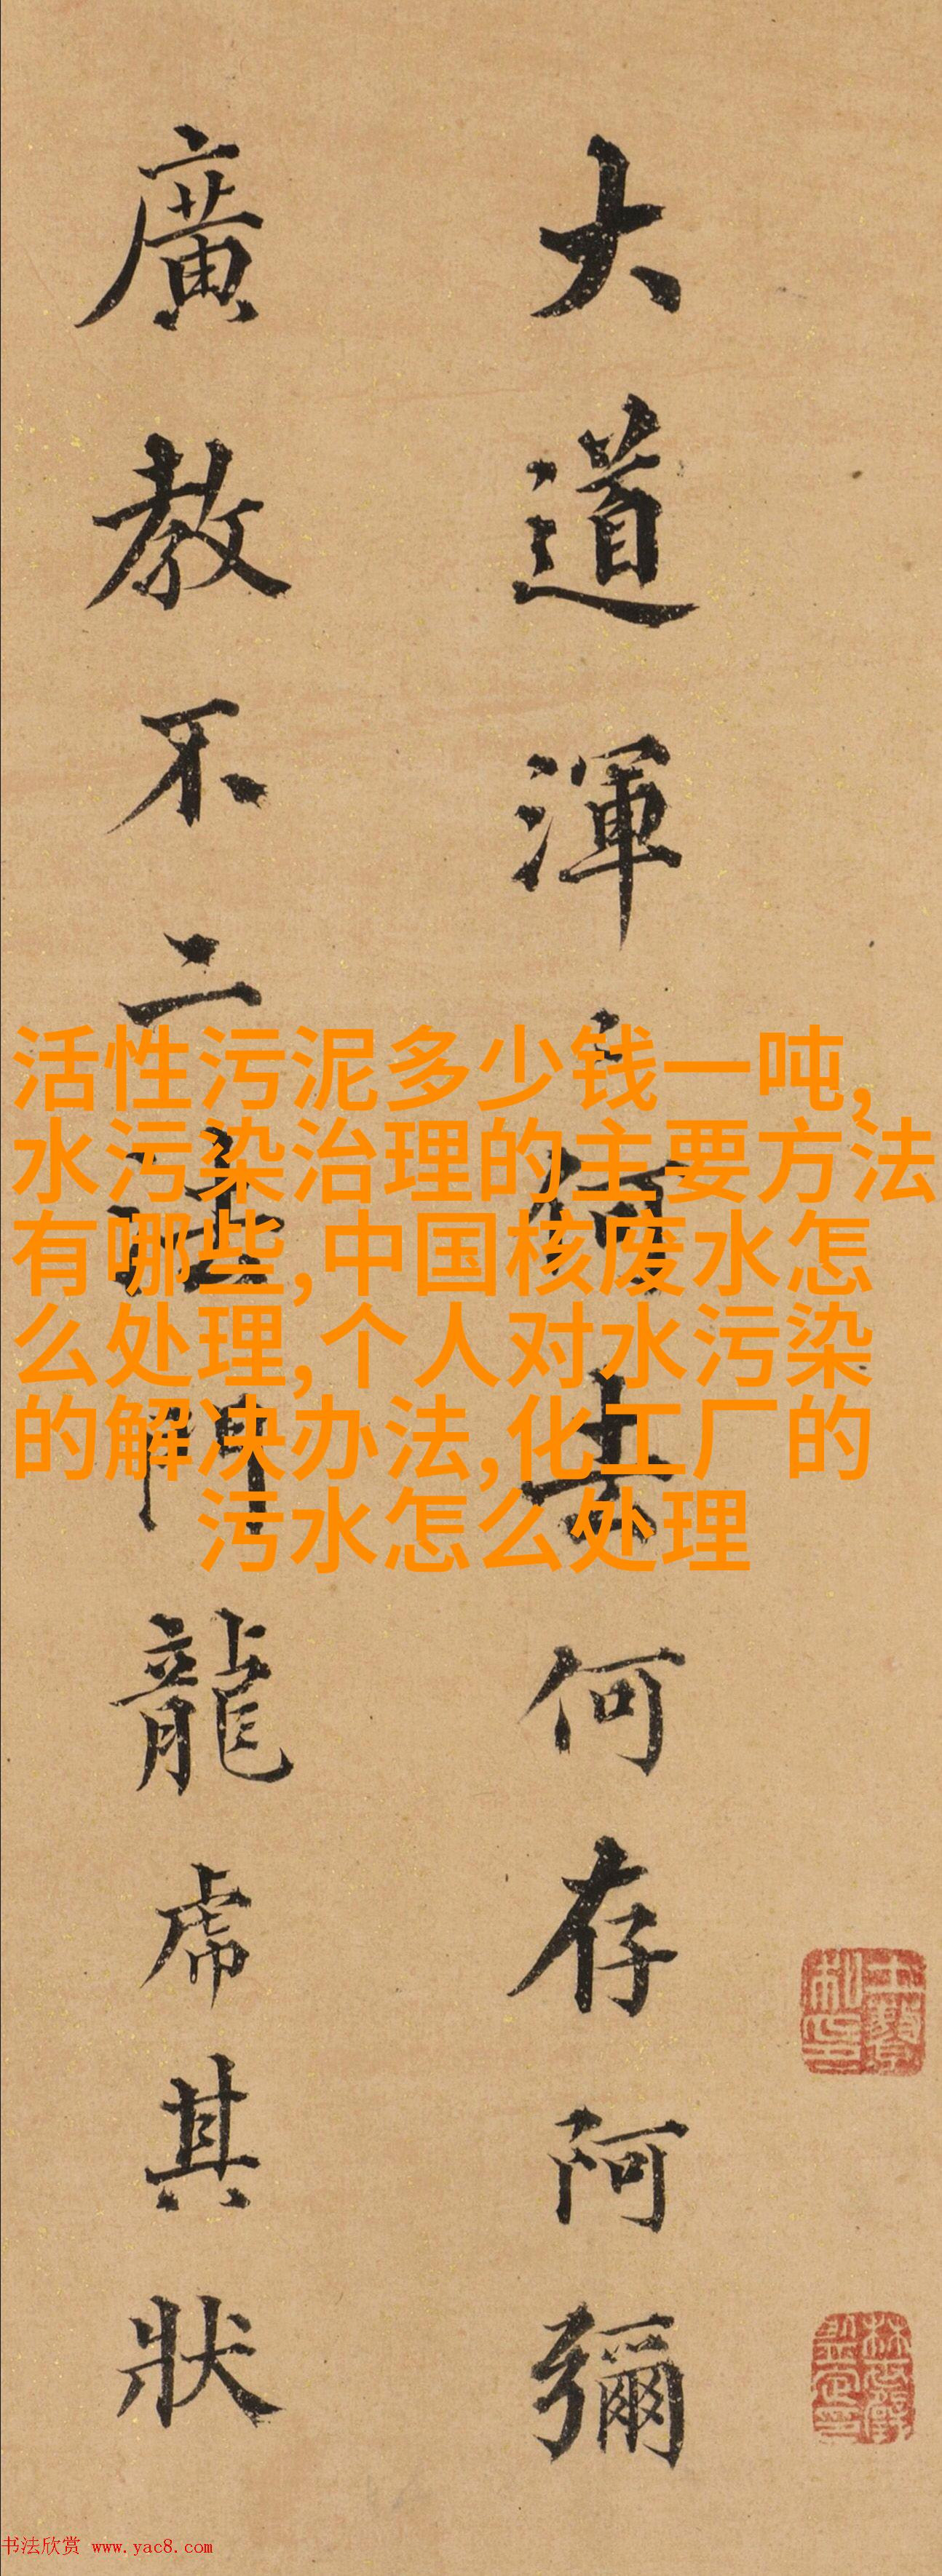 大道渾何去何存阿彌
廣教不二門龍虎其狀
活性污泥多少钱一吨,
水污染治理的主要方法
有哪些,中国核废水怎
么处理,个人对水污染
的解决办法,化工厂的
污水怎么处理
书法欣赏 www.yac8.com